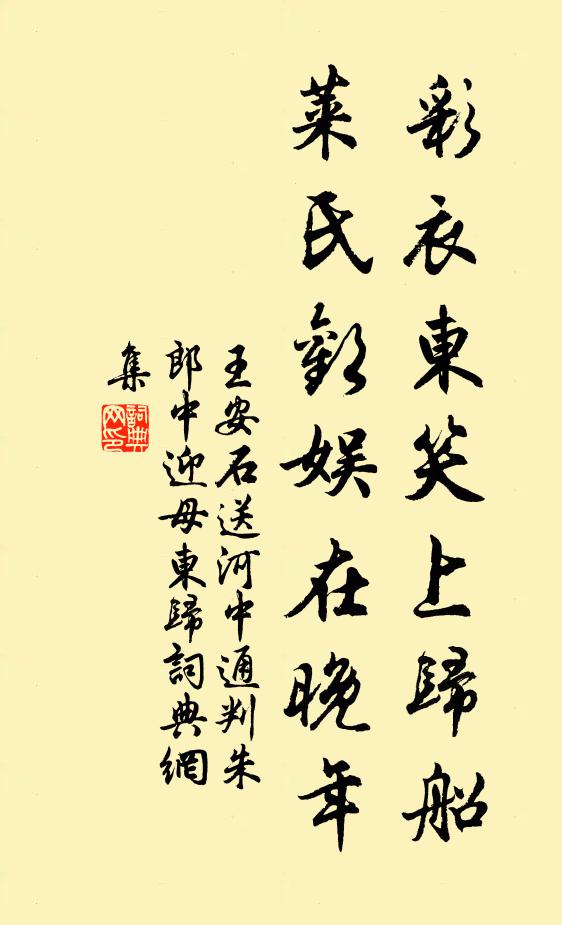 彩衣東笑上歸船
萊氏歡娛在晚年
王安石送河中通判朱
郎中迎母東歸詞典網
集
詞典
网印